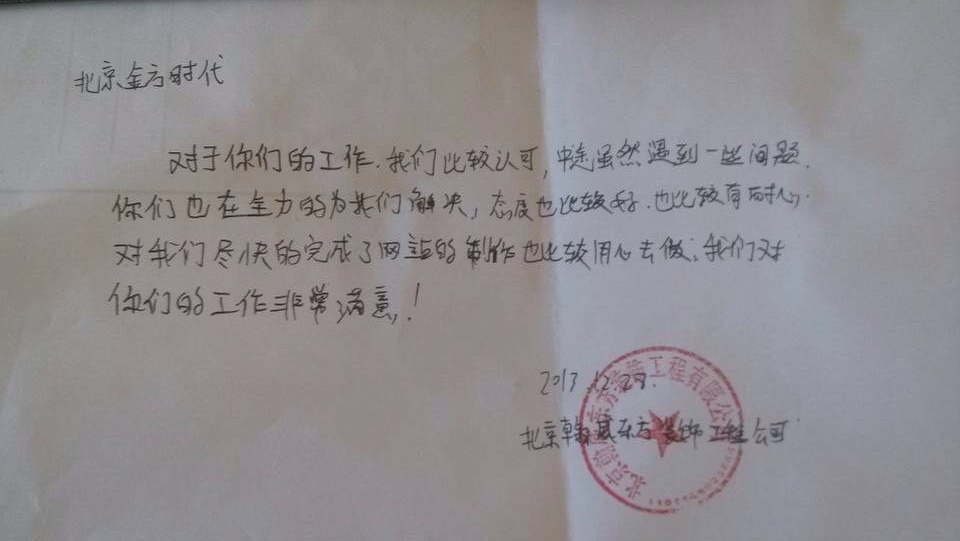 北京金方时代
对于你们的工作.我们比较认可,中途虽然遇到一些问题.
你们也在全力的为我们解决,态度也比较好.也比较有耐心.
对我们尽快的完成了网站的制作也比较用心去做.我们对
你们的工作非常满意!
2013.12.29.
北京翰 东方装饰工程公司
北京 东方装饰工程有限公